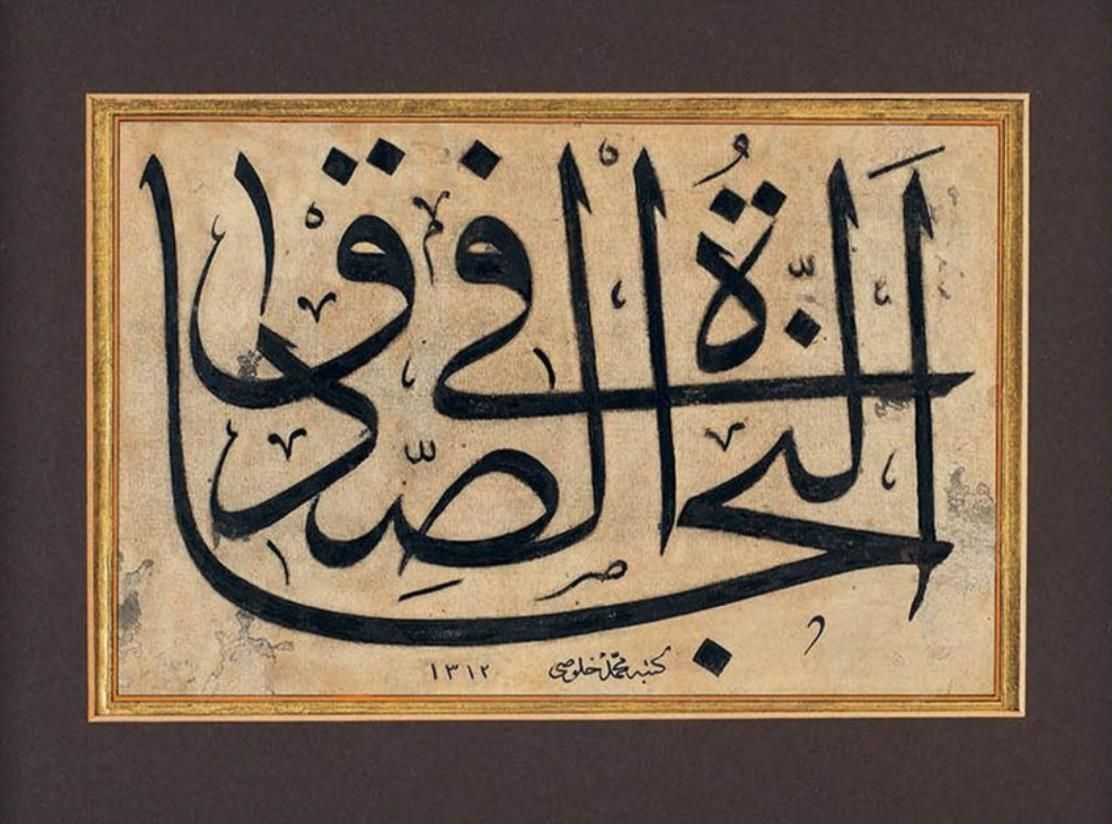 اَلنَّجَاةُ فِي الصِّدْقِ
كتبه محمد خلوصي ١٣١٢